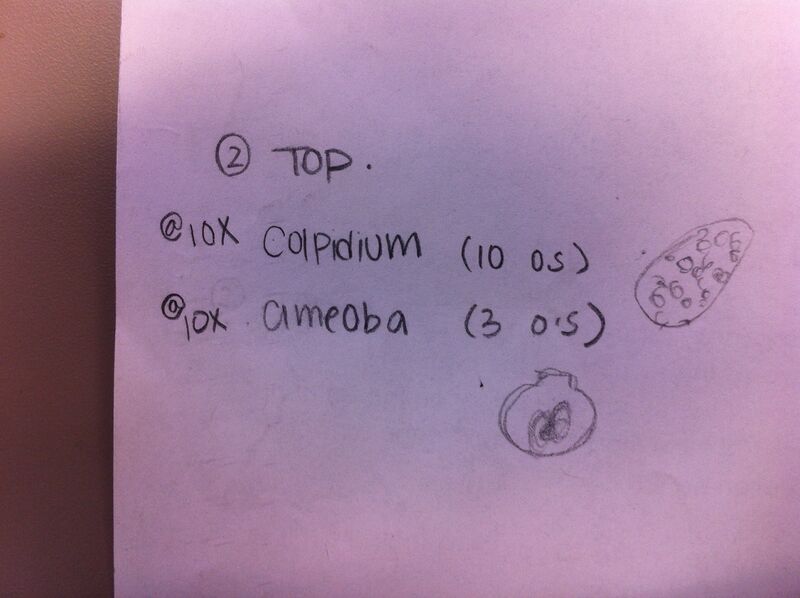 ② TOP.
@10X Colpidium (10 os)
@10x ameoba (3 o's)